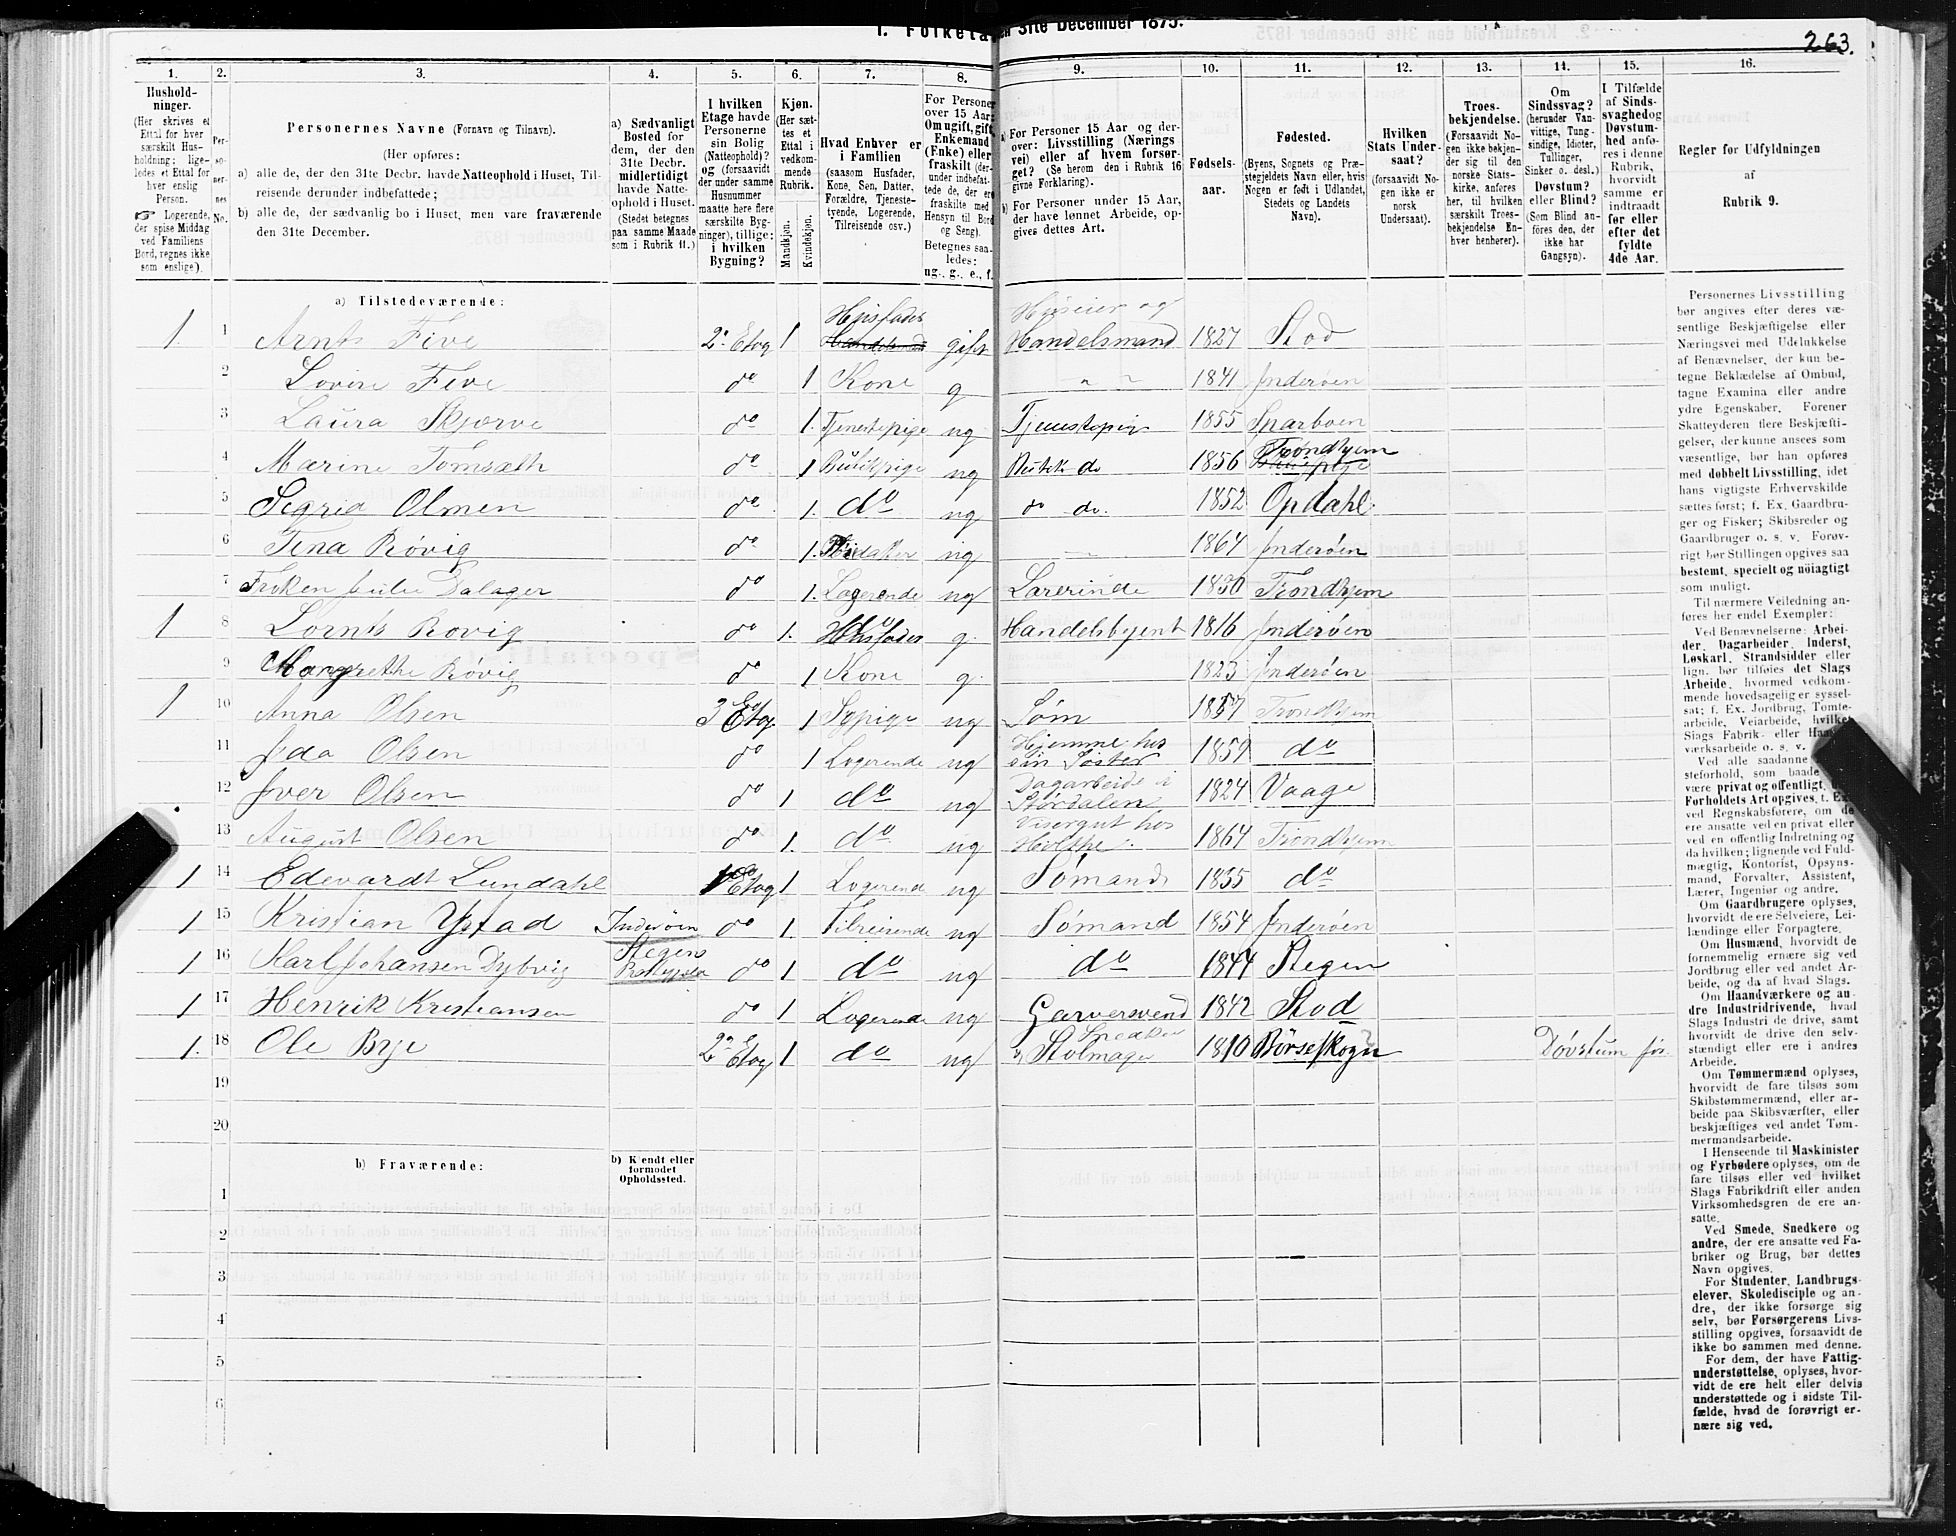 1. Folketæ en 31te December 1875.
263.
1. 2. 3. 4. 5. 6. 7. 8. 9. 10. 11. 12. 13. 14. 15. 16.
Hushold-
ninger.
(Her skrives et
Ettal for hver
særskilt Hus-
holdning; lige-
ledes et Ettal for
hver enslig
Person.
☞ Logerende,
der spise Middag
ved Familiens
Bord, regnes ikke
som enslige).
Per-
so-
ner-
nes
No.
Personernes Navne (Fornavn og Tilnavn).
(Her opføres:
a) alle de, der den 31te Decbr. havde Natteophold i Huset, Til-
reisende derunder indbefattede;
b) alle de, der sædvanlig bo i Huset, men vare fraværende
den 31te December.
a) Sædvanligt
Bosted for
dem, der den
31te Decbr.
midlertidigt
havde Natte-
ophold i Huset.
(Stedet betegnes
paa samme Maade
som i Rubrik 11.)
I hvilken
Etage havde
Personerne
sin Bolig
(Natteophold)?
og (forsaavidt
der under samme
Husnummer
maatte høre flere
særskilte Byg-
ninger), tillige:
i hvilken
Bygning?
Kjøn.
(Her sæt-
tes et
Ettal i
vedkom-
mende
Rubrik.
Mandkjøn. Kvindekjøn.
Hvad Enhver er
i Familien
(saasom Husfader,
Kone, Søn, Datter,
Forældre, Tjeneste-
tyende, Logerende,
Tilreisende osv.)
For Personer
over 15 Aar:
Om ugift, gift,
Enkemand
(Enke) eller
fraskilt (der-
under indbefat-
tede de, der ere
fraskilte med
Hensyn til Bord
og Seng).
Betegnes saa-
ledes:
ug., g., e., f.
a) For Personer 15 Aar og der-
over: Livsstilling (Nærings
vei) eller af hvem forsør-
get? (Se herom den i Rubrik 16
givne Forklaring).
b) For Personer under 15 Aar,
der have lønnet Arbeide, op-
gives dettes Art.
Fødsels-
aar.
Fødested.
(Byens, Sognets og Præ-
stegjeldets Navn eller, hvis
Nogen er født i Udlandet,
Stedets og Landets
Navn).
Hvilken
Stats Under-
saat?
(forsaavidt No-
gen ikke er
norsk
Undersaat).
Troes-
bekjendelse.
(Forsaavidt No-
gen ikke bekjen-
der sig til den
norske Stats-
kirke, anføres
her, til hvilken
særskilt Troes-
bekjendelse En-
hver henhører).
Om
Sindssvag?
(herunder Van-
vittige, Tung-
sindige, Idioter,
Tullinger,
Sinker o. desl.)
Døvstum?
eller Blind?
(Som Blind an-
føres den, der
ikke har
Gangsyn).
I Tilfælde
af Sinds-
svaghed og
Døvstum-
hed anfø-
res i denne
Rubrik,
hvorvidt
samme er
indtraadt
før eller
efter det
fyldte
4de Aar.
Regler for Udfyldningen
af
Rubrik 9.
a) Tilstedeværende:
1 1 Arnts Five 2. Etag 1 Husfader gift Huseier og Handelsmand 1827 Stod
2 Lovise Five do 1 Kone g " " 1841 Inderøen
3 Laura Skjerve do 1. Tjenestepige ug Tjenestepige 1855 Sparboen
4 Marine Tomsæth do 1 Butikpige ug Butik do 1856 Trondhjem
5 Segrid Olmen do 1. do ug do do. 1852 Opdahl
6 Tina Røvig do 1. ug 1864 Inderøen
7 Frøken Julie Dalager do 1. Logerende ug Lærerinde 1830 Trondhjem
1 8 Lornts Røvig do 1. Husfader g. Handelsbyent 1816 Inderøen
9 Margrethe Røvig do 1 Kone g. 1823 Inderøen
1 10 Anna Olsen 3 Etag 1 Sypige ug Søm 1857 Trondhjem
11 Ida Olsen do 1 Logerende ug Hjemme hos sin Søster 1859 do
12 Iver Olsen do 1 do ug Dagarbeide i Størdalen 1824 Vaage
13 August Olsen do 1. do ug Visergut hos Holthe. 1864 Trondhjem
1 14 Edevardt Lundahl 1 Etag 1 Logerende ug Sømand 1835 do
1 15 Kristian Ystad Inderøen do 1. Tilreisende ug Sømand 1854 Inderøen
1 16 Karl Johansen Dybvig Stegens do 1 do ug do 1844 Stegen
1 17 Henrik Kristiansen do 1 Logerende ug Garversvend 1842 Stod
1. 18 Ole Bye 2 Etag 1 do ug Snedker Stolmager 1810 Børseskogn Døvstum før
19
20
b) Fraværende: b) Kjendt eller
formodet
Opholdssted.
1
2
3
4
5
6
Personernes Livsstilling
bør angives efter deres væ-
sentlige Beskjæftigelse eller
Næringsvei med Udelukkelse
af Benævnelser, der kun be-
tegne Beklædelse af Ombud,
tagne Examina eller andre
ydre Egenskaber. Forener
Skatteyderen flere Beskjæfti-
gelser, der kunne ansees som
væsentlige, bør han opføres
med dobbelt Livsstilling, idet
hans vigtigste Erhvervskilde
sættes først; f. Ex. Gaardbru-
ger og Fisker; Skibsreder og
Gaardbruger o. s. v. Forøv-
rigt bør Stillingen opgives saa
bestemt, specielt og nøiagtigt
som muligt.
Til nærmere Veiledning an-
føres her endel Exempler:
Ved Benævnelserne: Arbei-
der, Dagarbeider, Inderst,
Løskarl, Strandsidder eller
lign. bør tilføies det Slags
Arbeide, hvormed vedkom-
mende hovedsagelig er syssel-
sat; f. Ex. Jordbrug, Tomte-
arbeide, Veiarbeide, hvilket
Slags Fabrik- eller Haand-
værksarbeide o. s. v.
Ved alle saadanne
steforhold, som baade
være privat og offentligt,
Forholdets Art opgives, t. Ex.
ved Regnskabsførere, om de
ere ansatte ved en privat eller
ved en offentlig Indretning og
da hvilken; lignende ved Fuld-
mægtig, Kontorist, Opsyns-
mand, Forvalter, Assistent,
Lærer, Ingeniør og andre.
Om Gaardbrugere oplyses,
hvorvidt de ere Selveiere, Lei-
lændinge eller Forpagtere.
Om Husmænd, hvorvidt de
fornemmelig ernære sig ved
Jordbrug eller ved andet Ar-
beide, og da af hvad Slags.
Om Haandværkere og an-
dre Industridrivende, hvad
Slags Industri de drive, samt
hvorvidt de drive den selv-
stændigt eller ere i andres
Arbeide.
Om Tømmermænd oplyses,
hvorvidt de fare tilsøs som
Skibstømmermænd, eller ar-
beide paa Skibsværfter, eller
beskjæftiges ved andet Tøm-
mermandsarbeide.
I Henseende til Maskinister
og Fyrbødere oplyses, om de
fare tilsøs eller ved hvilket
Slags Fabrikdrift eller anden
Virksomhedsgren de ere an-
satte.
Ved Smede, Snedkere og
andre, der ere ansatte ved Fa-
briker og Brug, bør dettes
Navn opgives.
For Studenter, Landbrugs-
elever, Skoledisciple og an-
dre, der ikke forsørge sig
selv, bør Forsørgerens Livs-
stilling opgives, forsaavidt de
ikke bo sammen med denne.
For dem, der have Fattig-
understøttelse, oplyses, hvor-
vidt de ere helt eller delvis
understøttede og i sidste Til-
fælde, hvad de forøvrigt er-
nære sig ved.